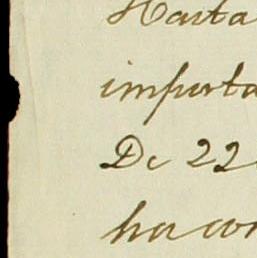 Hasta
importa
De 22
ha con